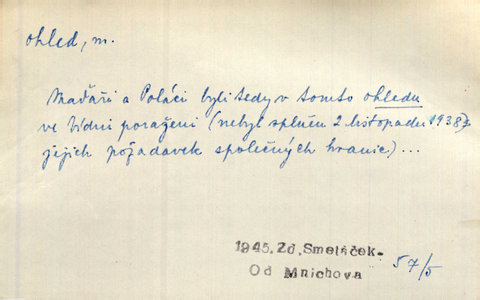 ohled, m.
Maďaři a Poláci byli tedy v tomto ohledu
ve Vídni poraženi (nebyl splněn 2. listopadu 1938
jejich požadavek společných hranic) ...
1945. Zd. Smetáček-
Od Mnichova
57/5